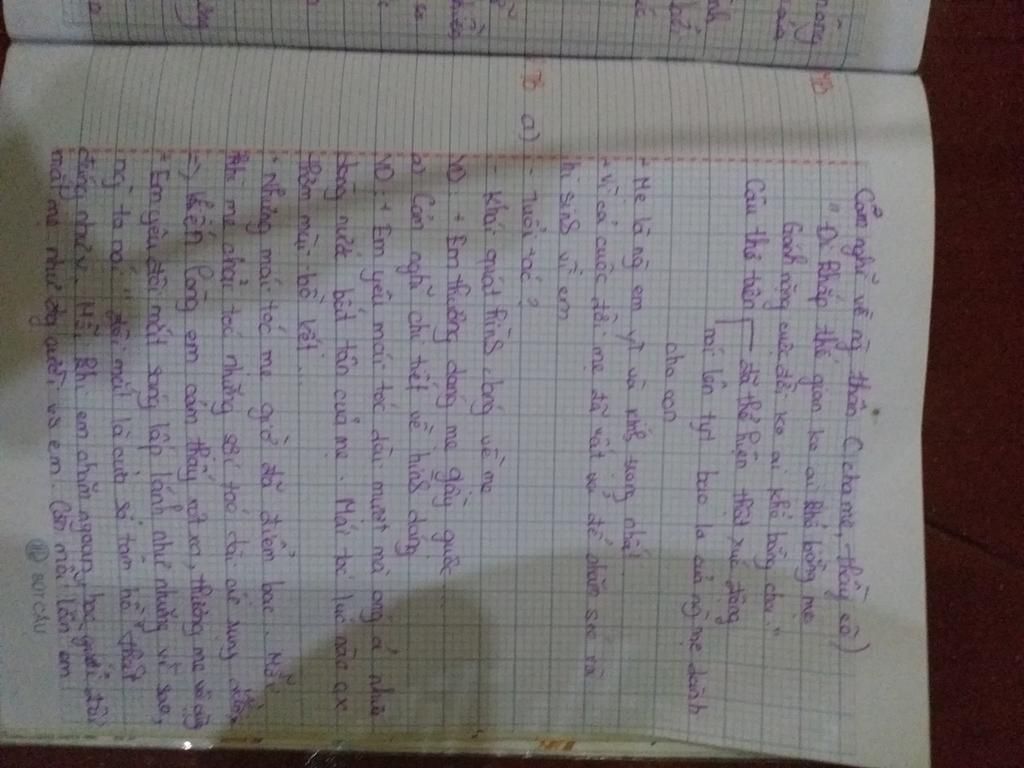 MB
Cảm nghĩ về ng thân (cha mẹ, thầy cô)
"Đi khắp thế gian ko ai khổ bằng mẹ
Gánh nặng cuộc đời ko ai khổ bằng cha."
Câu thơ trên đã thể hiện thật xúc động
nói lên ty bao la của ng mẹ dành
cho con
- Mẹ là ng em yt và kính trọng nhất
- Vì cả cuộc đời mẹ đã vất vả để chăm sóc và
hi sinh vì em
TB a) - Tuổi tác?
- Khái quát hình bóng về mẹ
VD + Em thương dáng mẹ gầy guộc...
a) Cảm nghĩ chi tiết về hình dáng
VD: + Em yêu mái tóc dài mượt mà óng ả như
dòng nước bất tận của mẹ. Mái tóc lúc nào cx
thơm mùi bồ kết...
+ Nhưng mái tóc mẹ giờ đã điểm bạc. Mỗi
khi mẹ chải tóc những sợi tóc cứ rụng
=> khiến lòng em cảm thấy xót xa, thương mẹ vô cùng
+ Em yêu đôi mắt sáng lấp lánh như những vì sao,
ng ta nói đôi mắt là cửa sổ tâm hồn thật
đúng như v. Mỗi khi em chăm ngoan, học giỏi đôi
mắt mẹ như đg cười vs em. Còn mỗi lần em
BÚT CHU